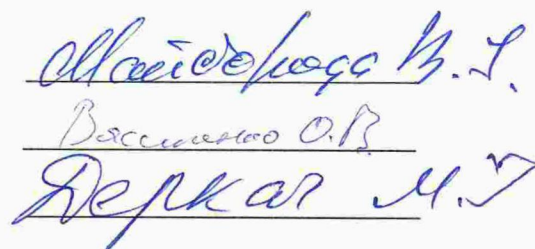 Майдорода В. І.
Василенко О.В
Деркач М.І